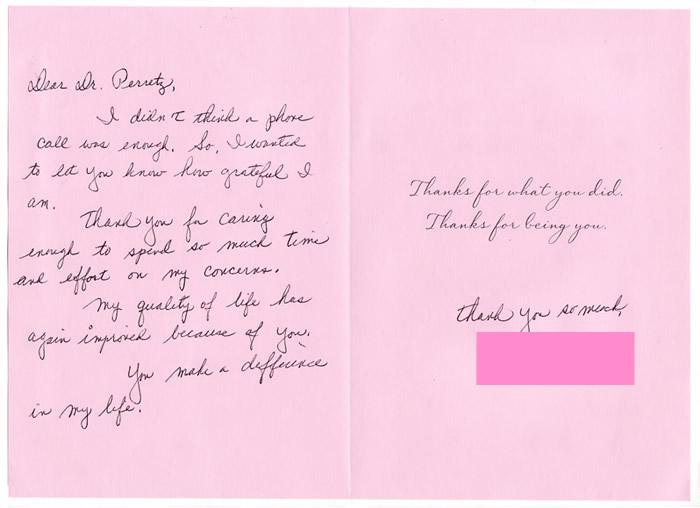 Dear Dr. Perretz,
I didn't think a phone
call was enough. So, I wanted
to let you know how grateful I
am.
Thank you for caring
enough to spend so much time
and effort on my concerns.
My quality of life has
again improved because of you.
You make a difference
in my life.
Thanks for what you did.
Thanks for being you.
Thank you so much,